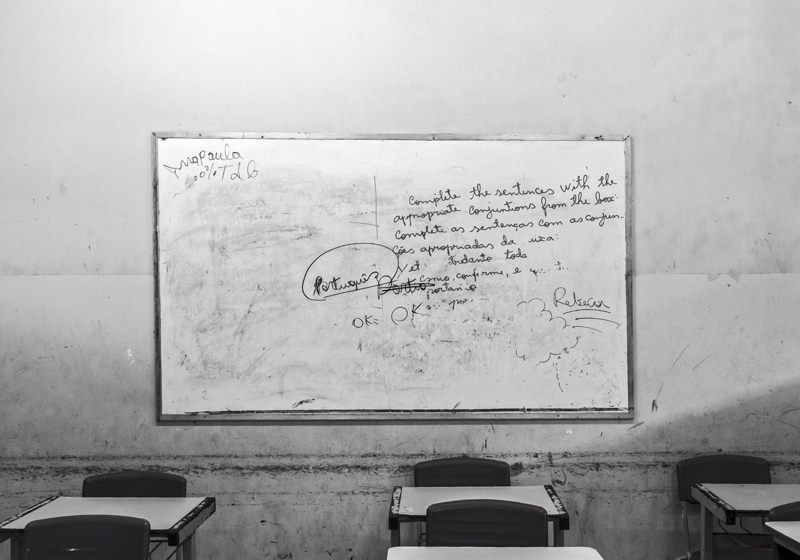 AnaPaula
Complete the sentences with the
appropriate Conjuntions from the box:
Complete as sentenças com as conjun-
ções apropriadas da
Yet: toda
Português
Como, conforme, e
OK OK
Rebeca